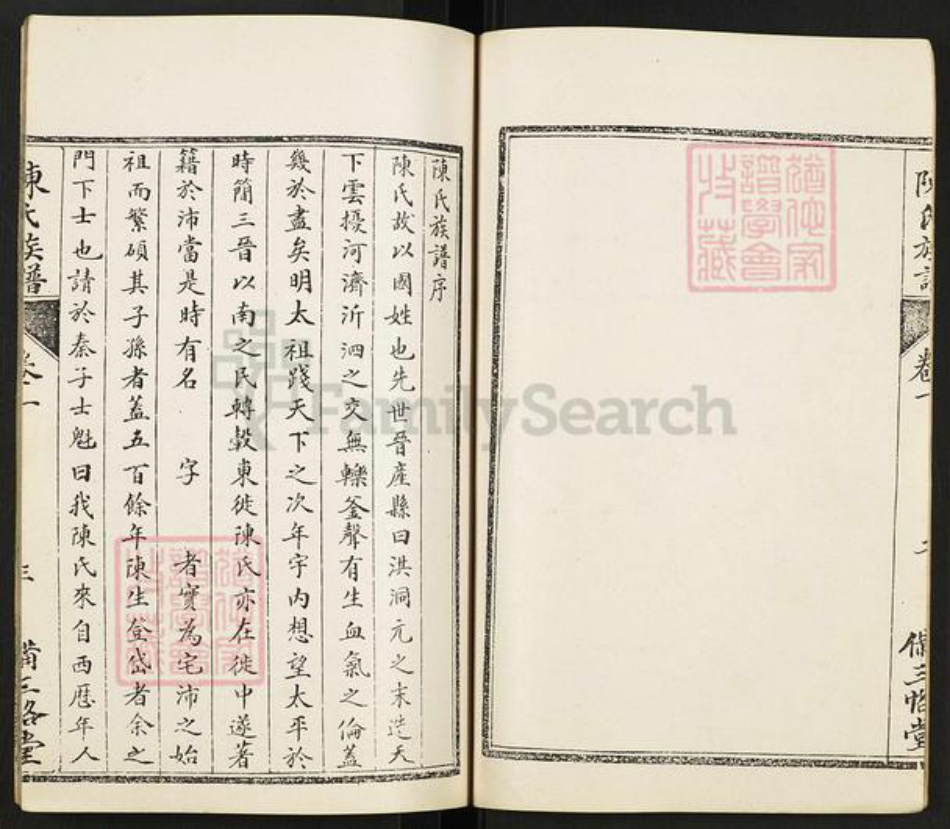 陳氏族譜
卷一
二
備三恪堂
陳氏族譜序
陳氏故以國姓也先世晉產縣曰洪洞元之末造天
下雲擾河濟沂泗之交無轢釜聲有生血氣之倫蓋
幾於盡矣明太祖踐天下之次年宇內想望太平於
時簡三晉以南之民轉轂東徙陳氏亦在徙中遂著
籍於沛當是時有名 字 者實為宅沛之始
祖而繁碩其子孫者蓋五百餘年陳生登岱者余之
門下士也請於秦子士魁曰我陳氏來自西歷年人
陳氏族譜
卷一
三
備三恪堂
FamilySearch